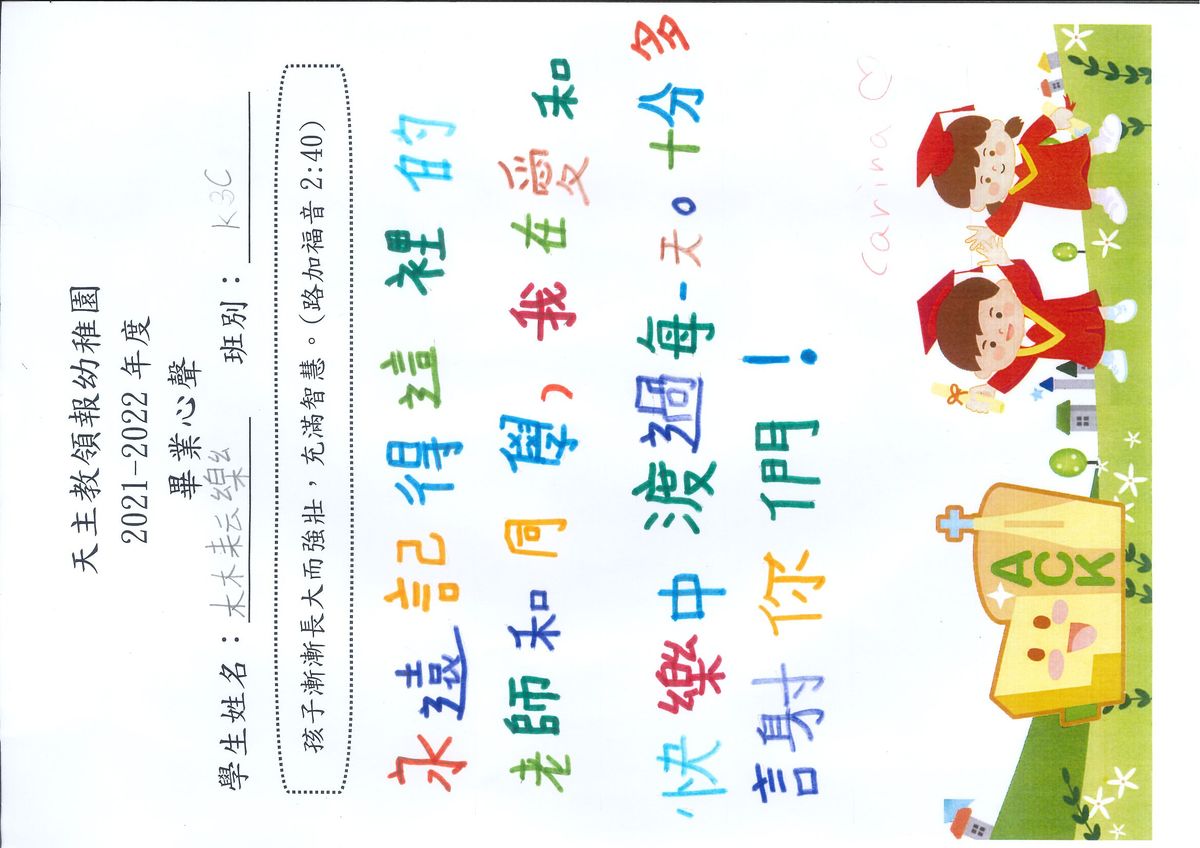 天主教領報幼稚園
2021-2022 年度
畢業心聲
學生姓名：林耘樂 班別：K3C
孩子漸漸長大而強壯，充滿智慧。(路加福音 2:40)
永遠記得這裡的
老師和同學，我在愛和
快樂中渡過每一天。十分多
謝你們！
Carina ♡
ACK